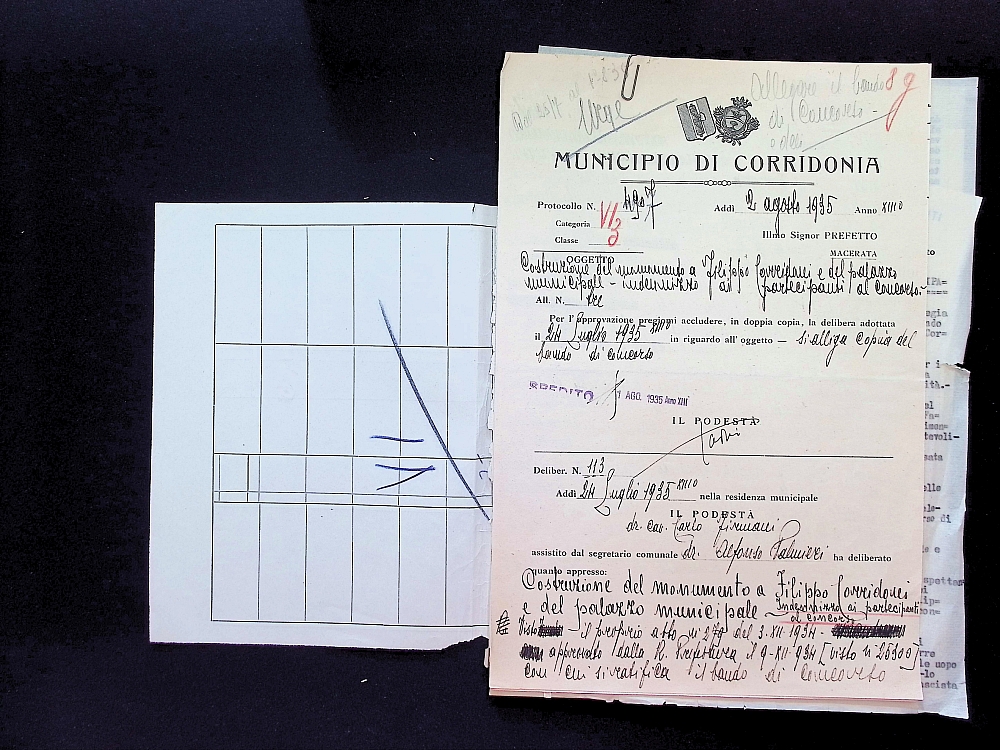 Urge
Allegare il bando
di Concorso -
8 g
MUNICIPIO DI CORRIDONIA
Protocollo N. 4907 Addì 2 agosto 1935 Anno XIII°
Categoria VI/3
Illmo Signor PREFETTO
Classe
MACERATA
OGGETTO
Costruzione del monumento a Filippo Corridoni e del palazzo
municipale - indennizzo ai partecipanti al concorso.
All. N. tre
Per l'approvazione pregiomi accludere, in doppia copia, la delibera adottata
il 24 Luglio 1935 XIII° in riguardo all'oggetto - si alliga copia del
bando di concorso
SPEDITO 1 AGO. 1935 Anno XIII
IL PODESTÀ
Deliber. N. 113
Addì 24 Luglio 1935 XIII° nella residenza municipale
IL PODESTÀ
dr. cav. Carlo Firmani
assistito dal segretario comunale dr. Alfonso Palmieri ha deliberato
quanto appresso:
Costruzione del monumento a Filippo Corridoni
e del palazzo municipale - Indennizzo ai partecipanti
al concorso
Visto il proprio atto n° 270 del 3. XII. 1934 -
approvato dalla R. Prefettura il 9-XII-1934 [visto n. 25300]
con cui si ratifica il bando di concorso